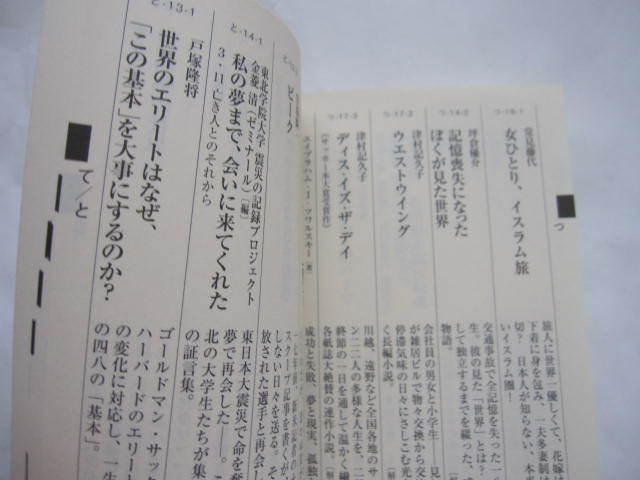 つ
つ-16-1
常見藤代
女ひとり、イスラム旅
旅人に世界一優しくて、花嫁は
下着に身を包み、一夫多妻制は
切？ 日本人が知らない、本当
いイスラム圏！
つ-16-2
坪倉優介
記憶喪失になった
ぼくが見た世界
交通事故で全記憶を失った一
生。彼の見た「世界」とは？
して独立するまでを綴った、
物語。
つ-17-2
津村記久子
ウエストウイング
会社員の男女と小学生
が雑居ビルで物々交換から交
停滞気味の日々にさしこむ光
く長編小説。
つ-17-3
津村記久子
ディス・イズ・ザ・デイ
[サッカー本大賞受賞作]
川越、遠野など全国各地のサ
ン二二人の多様な人生を、二
終節の一日を通して温かく
各紙誌大絶賛の連作小説。
エイブラハム・J・ツワルスキー[著]
成功と失敗、夢と現実、孤独
ピーク
スクープ記事を書くが
しない日々を送る。そ
放された選手と再会し
と-14-1
東北学院大学 震災の記録プロジェクト
金菱 清(ゼミナール)[編]
私の夢まで、会いに来てくれた
3・11 亡き人とのそれから
東日本大震災で命を奪
夢で再会した――。こ
北の大学生たちが集
の証言集。
と-13-1
戸塚隆将
世界のエリートはなぜ、
「この基本」を大事にするのか？
ゴールドマン・サック
ハーバードのエリート
の変化に対応し、一生
の四八の「基本」。
て/と